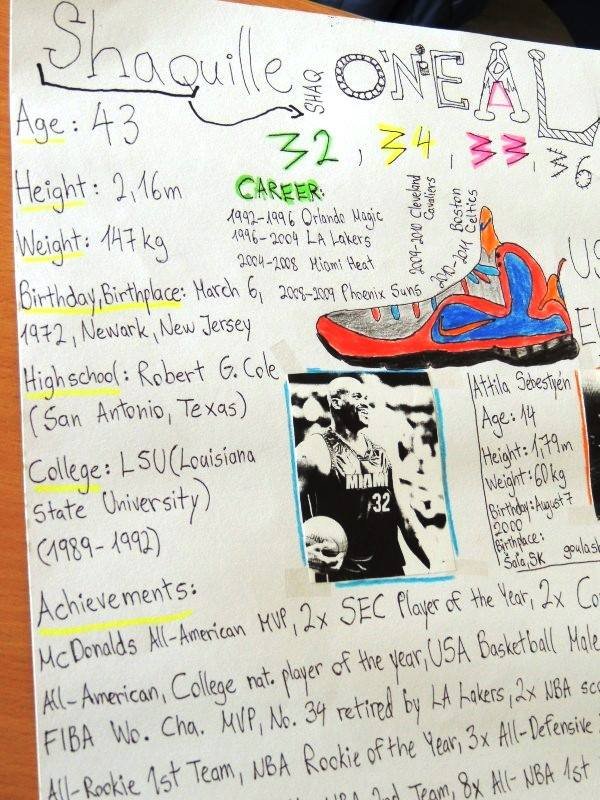 Shaquille SHAQ O'NEAL
Age: 43
32, 34, 33, №6
Height: 2,16m
CAREER:
1992-1996 Orlando Magic
1996-2004 LA Lakers
2004-2008 Miami Heat
2008-2009 Phoenix Suns
2009-2010 Cleveland Cavaliers
2010-2011 Boston Celtics
Weight: 147kg
Birthday, Birthplace: March 6,
1972, Newark, New Jersey
Highschool: Robert G. Cole
(San Antonio, Texas)
College: LSU (Louisiana
State University)
(1989-1992)
MIAMI
32
Attila Sebestyén
Age: 14
Height: 1,79m
Weight: 60kg
Birthday: August 7
2000
Birthplace:
Šaľa, SK
goulash
Achievements:
McDonalds All-American MVP, 2x SEC Player of the Year, 2x Co
All-American, College nat. player of the year, USA Basketball Male
FIBA Wo. Cha. MVP, No. 34 retired by LA Lakers, 2x NBA sco
All-Rookie 1st Team, NBA Rookie of the Year, 3x All-Defensive
2nd Team, 8x All-NBA 1st